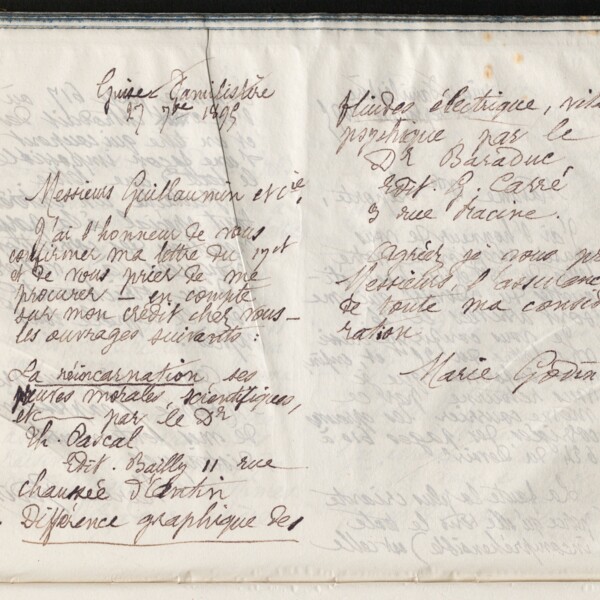 Guise Familistère
27 7bre 1895
Messieurs Guillaumin et Cie,
J'ai l'honneur de vous
confirmer ma lettre du 17 ct
et de vous prier de me
procurer – en compte
sur mon crédit chez vous –
les ouvrages suivants :
La réincarnation ses
preuves morales, scientifiques,
etc — par le Dr
Th. Pascal
Edit. Bailly 11 rue
chaussée d'Antin
Différence graphique des
fluides électrique, vita
psychique par le
Dr Baraduc
Edit G. Carré
3 rue Racine.
Agréer je vous pr
Messieurs, l'assuranc
de toute ma consid
ration
Marie Godin